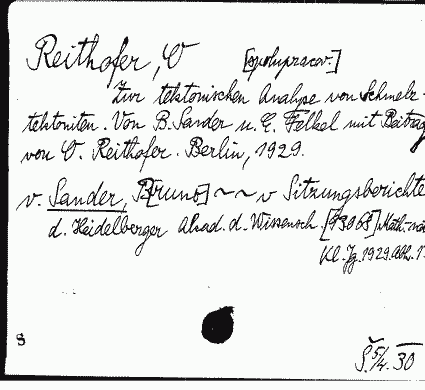 Reithofer, O [spolupracov.]
Zur tektonischen Analyse von Schmelz-
tektoniten. Von B. Sander u. E. Felkel mit Beitrag
von O. Reithofer. Berlin, 1929.
v. Sander, B[runo] ~~ v Sitzungsberichte
d. Heidelberger Akad. d. Wissensch. [93068] Math.-na
Kl. Jg. 1929. Abh. 1
8
Š. 5/4. 30